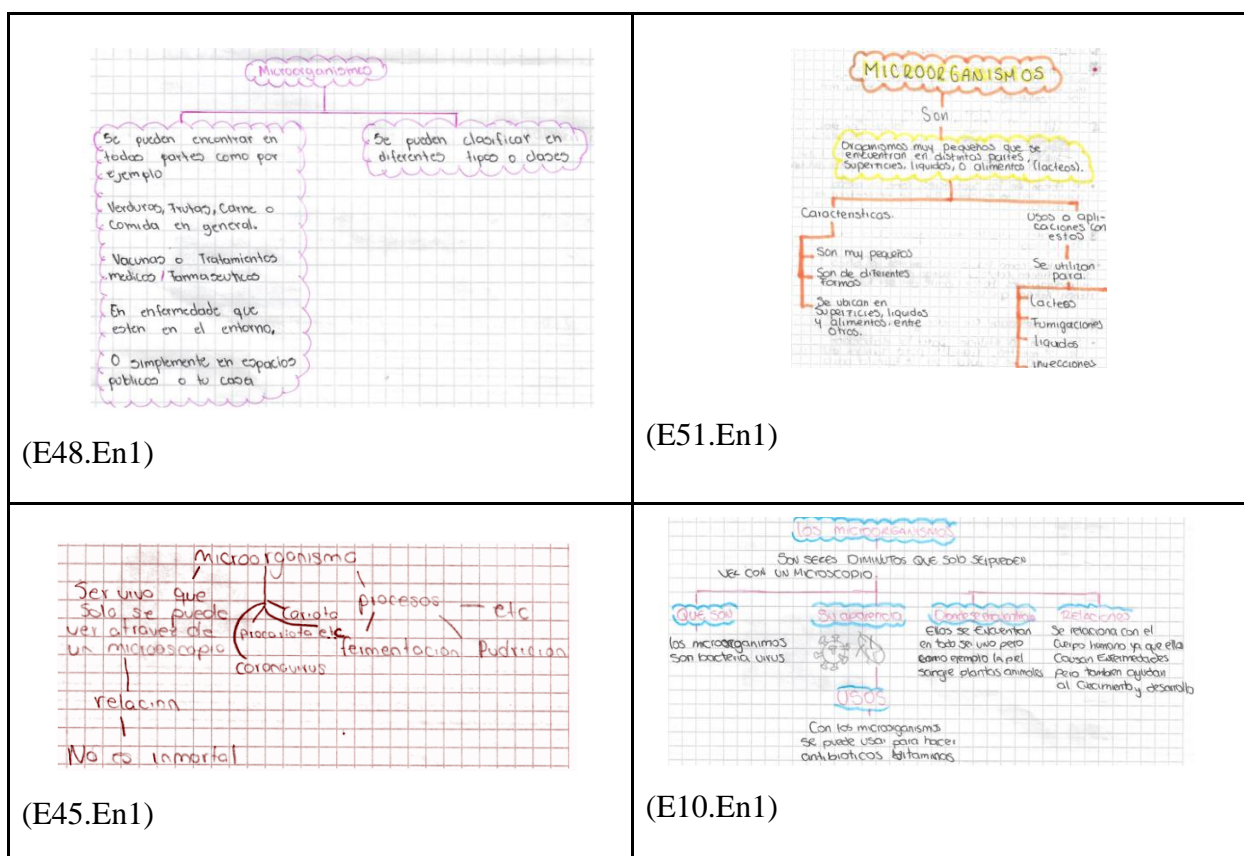 Microorganismos
Se pueden encontrar en
todas partes como por
ejemplo
Verduras, Frutas, Carne o
comida en general.
Vacunas o Tratamientos
medicos / Farmaseuticos
En enfermedade que
esten en el entorno,
O simplemente en espacios
publicos o tu casa
Se pueden clasificar en
diferentes tipos o clases
(E48.En1)
MICROORGANISMOS
Son
Organismos muy pequeños que se
encuentran en distintas partes,
superficies, liquidos, o alimentos (lacteos).
Caracteristicas.
Son muy pequeños
Son de diferentes
formas
Se ubican en
superficies, liquidos
y alimentos entre
otros.
Usos o apli-
caciones con
estos
Se utilizan
para.
Lacteos
Fumigaciones
liquidos
inyecciones
(E51.En1)
Microorganismo
Ser vivo que
Solo se puede
ver atraves de
un microoscopio
relacion
No es inmortal
cariota
procariota etc
coronavirus
procesos — etc
fermentacion
Pudricion
(E45.En1)
LOS MICROORGANISMOS
SON SERES DIMINUTOS QUE SOLO SE PUEDEN
VER CON UN MICROSCOPIO.
QUE SON
los microorganimos
son bacteria virus
Su apariencia
USOS
Con los microorganisms
se puede usar para hacer
antibioticos vitaminas
Donde se encuentran
Ellos se Encuentran
en todo se vivo pero
como ejemplo la piel
sangre plantas animales
RElaciones
Se relaciona con el
Cuerpo humano ya que ella
Causan Enfermedades
pero tambien ayudan
al Crecimiento y desarrollo
(E10.En1)